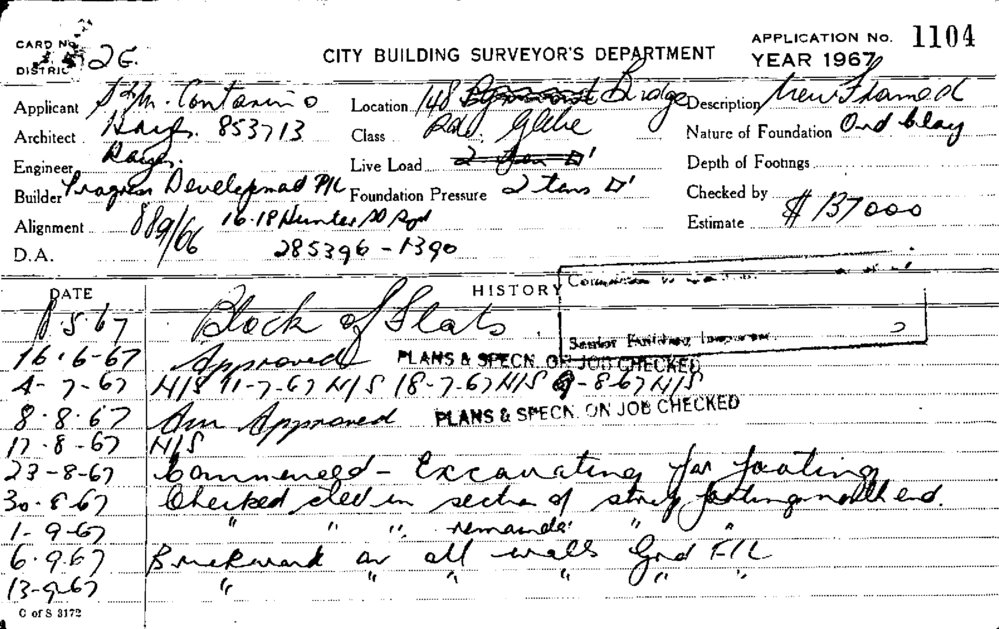 CARD No.
DISTRICT 2G.
CITY BUILDING SURVEYOR'S DEPARTMENT
APPLICATION No. 1104
YEAR 1967
Applicant S & M. Contarino Location 148 Bridge Description New Framed
Architect Hays. 853713 Class Rd. Glebe Nature of Foundation Ord Clay
Engineer Hays. Live Load Depth of Footings
Builder Progress Development P/L Foundation Pressure 2 tons □' Checked by
Alignment 8/9/66 16-18 Hunter St Syd Estimate $ 137000
D.A. 285396 - 1390
DATE HISTORY
5.67 Block of Flats
Senior Building Inspector
16.6-67 Approved PLANS & SPECN. ON JOB CHECKED
4-7-67 N/S 11-7-67 N/S 18-7-67 N/S -8-67 N/S
8.8.67 Am Approved PLANS & SPECN. ON JOB CHECKED
17-8-67 N/S
23-8-67 Commenced - Excavating for footing
30-8-67 Checked in section of strip footing north end.
1-9-67 " " " remainder " "
6.9.67 Brickwork on all walls Gnd F/L
13-9-67 " " " " "
C of S 3172